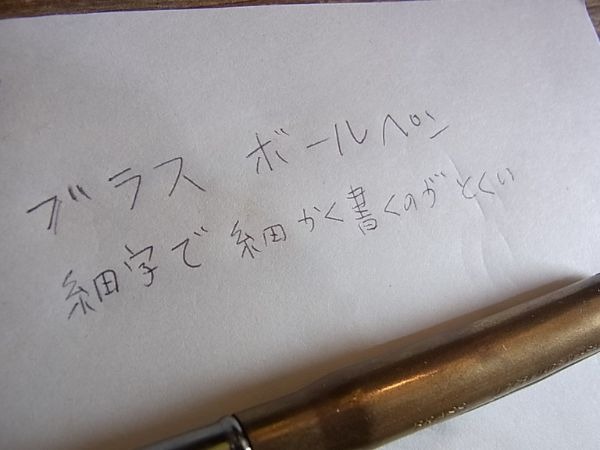 ブラス ボールペン
細字で細かく書くのがとくい